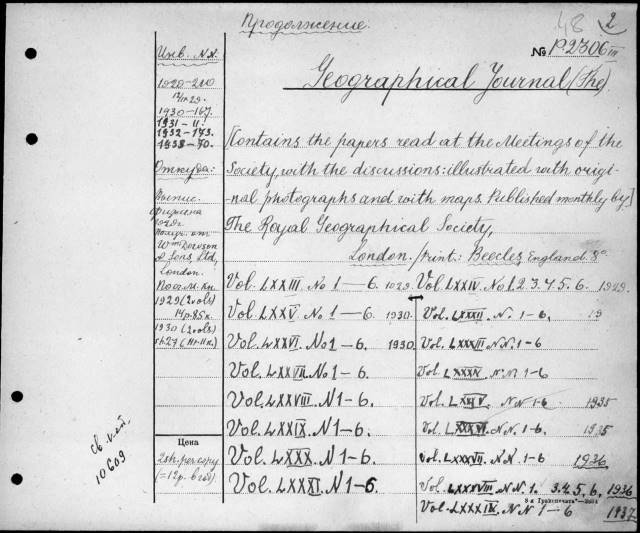 Продолжение.
48 2
№ P2306 III
Geographical Journal (The)
Инв. №№.
1929-200
12/IV 29.
1930-167.
1931-11.
1932-173.
1938-70.
Откуда:
Выпис.
1929г.
от
Wm Dawson
& Sons, Ltd,
London.
1929 (2 vols)
14р.85к.
1930 (2 vols)
Цена
2sh. per copy
(=12р.
св. кат.
10609
[Contains the papers read at the Meetings of the
Society, with the discussions: illustrated with origi-
nal photographs and with maps. Published monthly by]
The Royal Geographical Society,
London. print: Beccles England. 8°
Vol. LXXIII. No 1—6. 1929. Vol. LXXIV. No 1. 2. 3. 4. 5. 6. 1929.
Vol. LXXV. No 1—6. 1930.
Vol. LXXVI. No 1-6. 1930.
Vol. LXXVII. No 1-6.
Vol. LXXVIII. No 1-6.
Vol. LXXIX. No 1-6.
Vol. LXXX. No 1-6.
Vol. LXXXI. N 1-6.
Vol. N. 1-6, 19
Vol. N. 1-6
Vol. LXXXV. N.N 1-6
Vol. N N 1-6 1935
Vol. LXXXVI. N.N. 1-6. 1935
Vol. LXXXVII. N.N. 1-6. 1936
Vol. LXXXVIII. N.N. 1. 3.4.5.6. 1936
Vol. LXXXIX. N N 1—6 1937